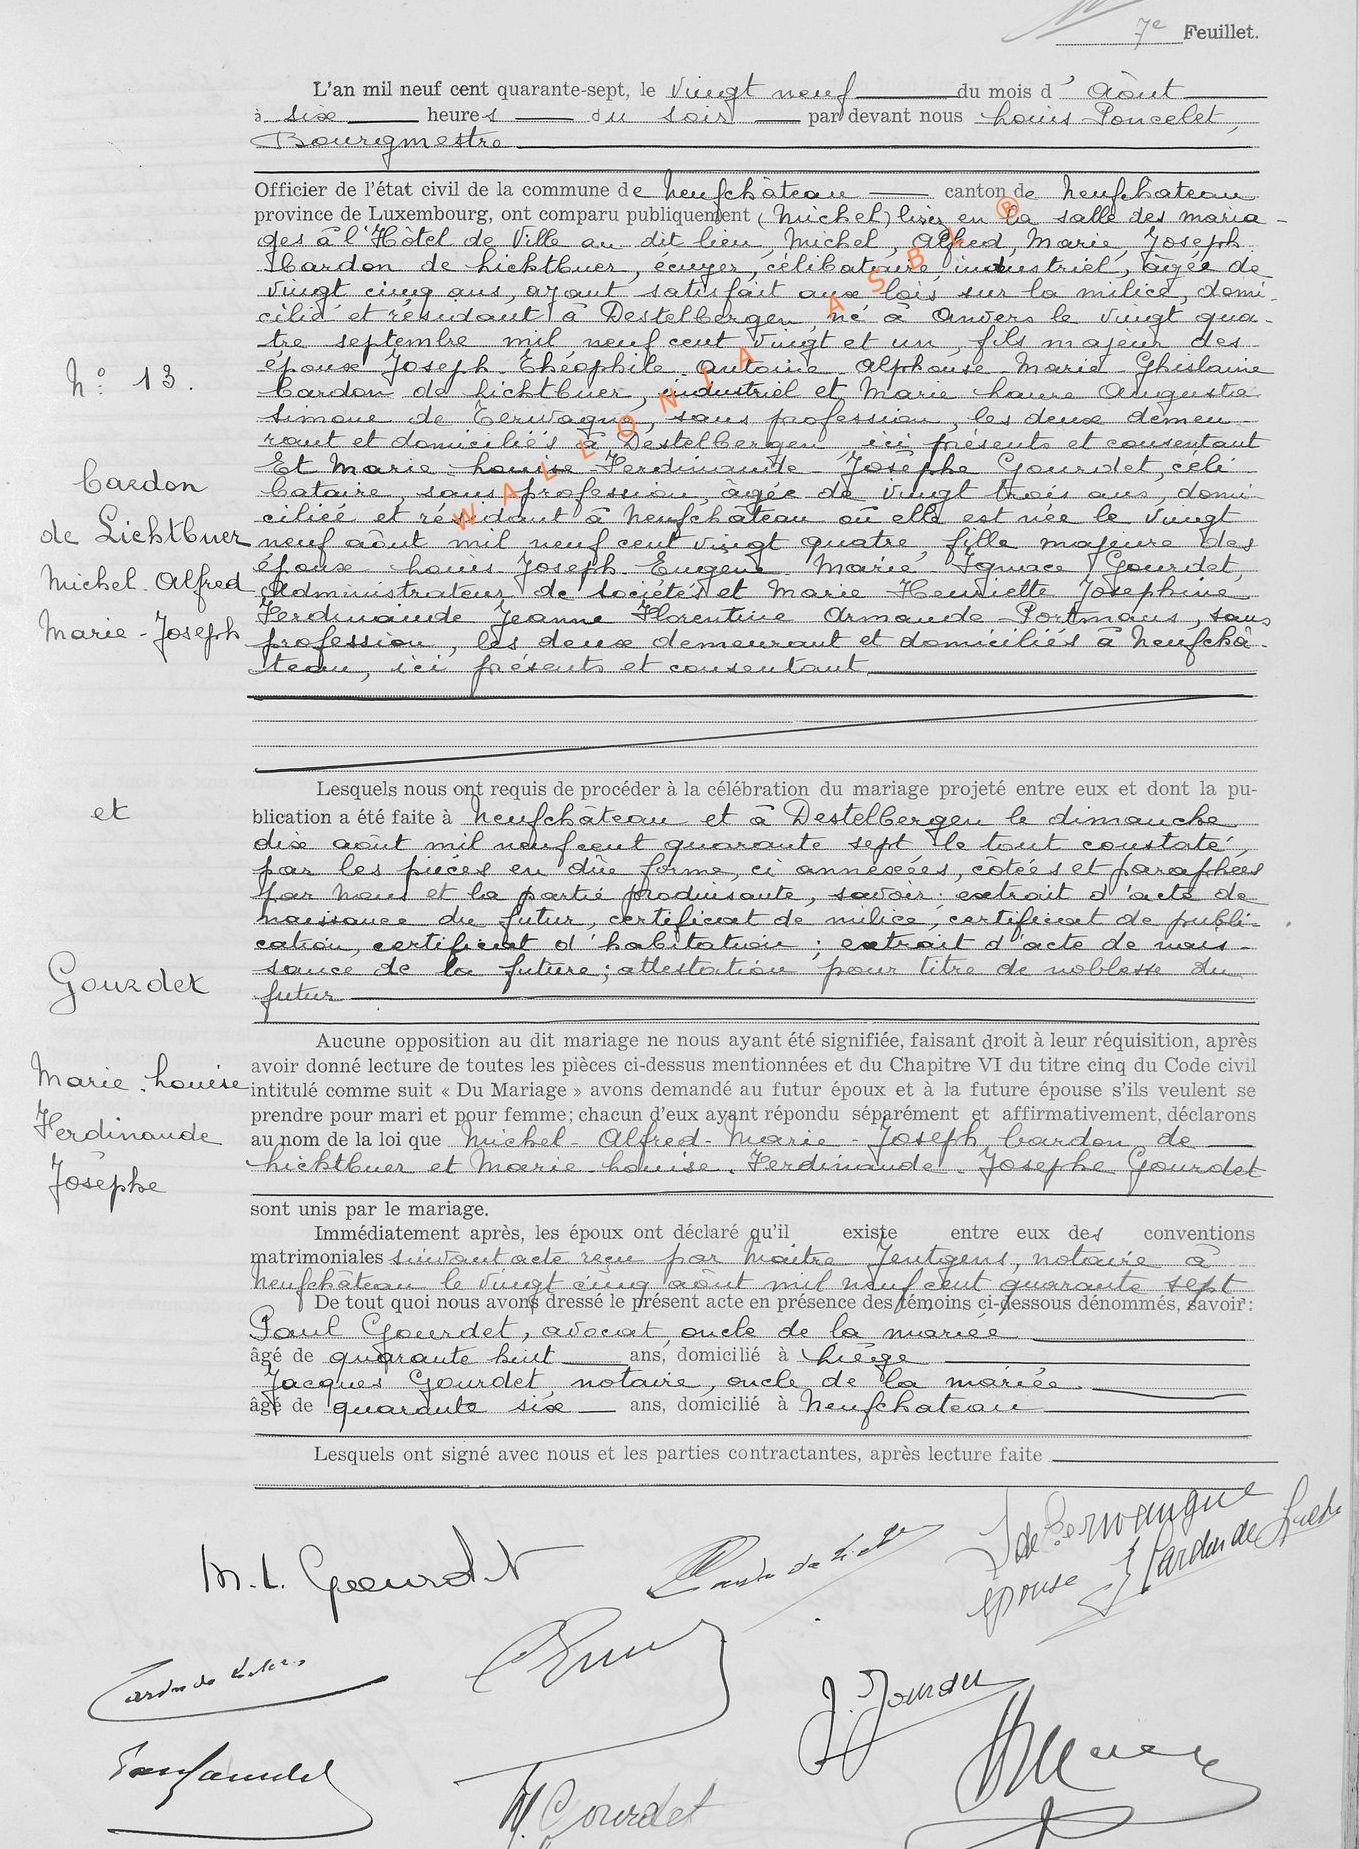 7e Feuillet.
L'an mil neuf cent quarante-sept, le vingt neuf du mois d'Août
à six heures du soir par devant nous Louis Poncelet,
Bourgmestre
Officier de l'état civil de la commune de Neufchâteau canton de Neufchateau
province de Luxembourg, ont comparu publiquement (Michel) en la salle des maria-
ges à l'Hôtel de Ville au dit lieu, Michel, Alfred, Marie, Joseph
Cardon de Lichtbuer, écuyer, célibataire industriel, âgée de
vingt cinq ans, ayant satisfait aux lois sur la milice, domi-
cilié et résidant à Destelbergen, né à Anvers le vingt qua-
tre septembre mil neuf cent vingt et un, fils majeur des
époux Joseph-Théophile-Antoine-Alphonse-Marie-Ghislaine
Cardon de Lichtbuer, industriel et Marie Laure Augusta
Simone de Terwagne, sans profession, les deux demeu-
rant et domiciliés à Destelbergen ici présents et consentant
Et Marie-Louise-Ferdinande-Josèphe Gourdet, céli-
bataire, sans profession, âgée de vingt trois ans, domi-
ciliée et résidant à Neufchâteau où elle est née le vingt
neuf août mil neuf cent vingt quatre, fille majeure des
époux Louis Joseph Eugène Marie Ignace Gourdet,
Administrateur de sociétés et Marie Henriette Josephine
Ferdinande Jeanne Florentine Armande Portmans, sans
profession, les deux demeurant et domiciliés à Neufchâ-
teau, ici présents et consentant
N° 13.
Cardon
de Lichtbuer
Michel-Alfred
Marie-Joseph
et
Gourdet
Marie-Louise
Ferdinande
Josèphe
Lesquels nous ont requis de procéder à la célébration du mariage projeté entre eux et dont la pu-
blication a été faite à Neufchâteau et à Destelbergen le dimanche
dix août mil neuf cent quarante sept le tout constaté,
par les pièces en dûe forme, ci annexées, côtées et paraphées
par nous et la partie produisante, savoir: extrait d'acte de
naissance du futur, certificat de milice, certificat de publi-
cation, certificat d'habitation; extrait d'acte de nais-
sance de la future; attestation pour titre de noblesse du
futur
Aucune opposition au dit mariage ne nous ayant été signifiée, faisant droit à leur réquisition, après
avoir donné lecture de toutes les pièces ci-dessus mentionnées et du Chapitre VI du titre cinq du Code civil
intitulé comme suit « Du Mariage » avons demandé au futur époux et à la future épouse s'ils veulent se
prendre pour mari et pour femme; chacun d'eux ayant répondu séparément et affirmativement, déclarons
au nom de la loi que Michel-Alfred-Marie-Joseph Cardon de
Lichtbuer et Marie-Louise-Ferdinande-Josephe Gourdet
sont unis par le mariage.
Immédiatement après, les époux ont déclaré qu'il existe entre eux des conventions
matrimoniales suivant acte reçu par Maître Jentgens, notaire à
Neufchâteau le vingt cinq août mil neuf cent quarante sept
De tout quoi nous avons dressé le présent acte en présence des témoins ci-dessous dénommés, savoir:
Paul Gourdet, avocat, oncle de la mariée
âgé de quarante huit ans, domicilié à Liége
Jacques Gourdet, notaire, oncle de la mariée
âgé de quarante six ans, domicilié à Neufchateau
Lesquels ont signé avec nous et les parties contractantes, après lecture faite
M.L. Gourdet
S de Terwangne
épouse J Cardon de Licht
J. Gourdet
Paul Gourdet
M. Gourdet
WALLONIA ASBL ®